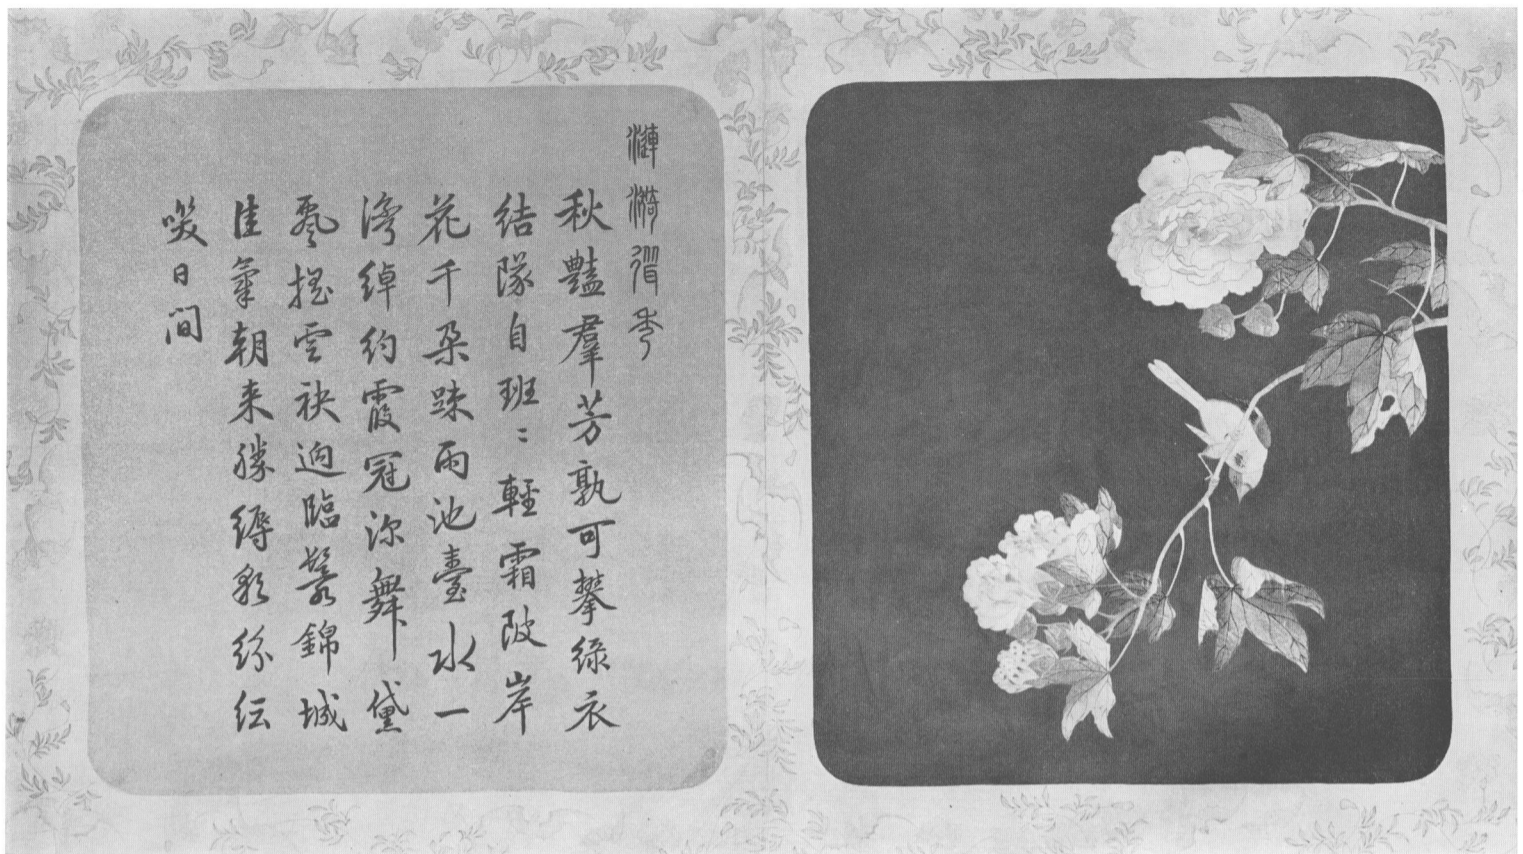 漣漪 秀
秋豔羣芳孰可攀綠衣
結隊自班〻輕霜陂岸
花千朵踈雨池臺水一
灣綽約霞冠深舞黛
飄搖雲袂迥臨鬟錦城
佳氣朝来勝縟彩紛紜
咲日間